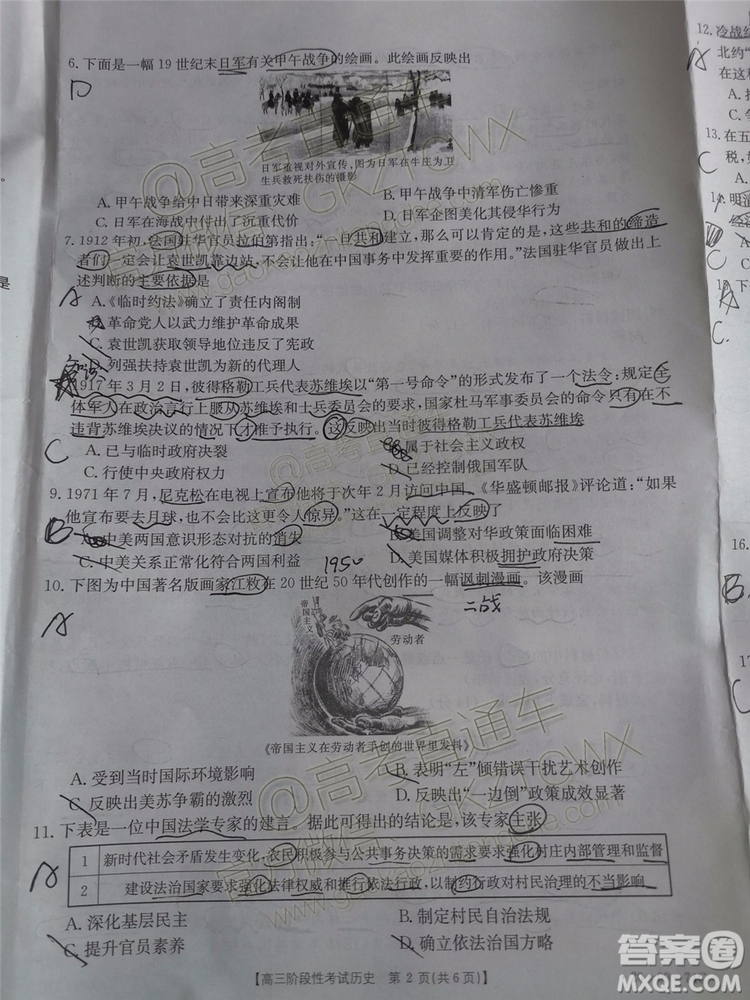 6. 下面是一幅 19 世纪末日军有关甲午战争的绘画。此绘画反映出
D
日军重视对外宣传，图为日军在牛庄为卫
生兵救死扶伤的摄影
A. 甲午战争给中日带来深重灾难
B. 甲午战争中清军伤亡惨重
C. 日军在海战中付出了沉重代价
D. 日军企图美化其侵华行为
7. 1912 年初，法国驻华官员拉的第指出：“一旦共和建立，那么可以肯定的是，这些共和的缔造
者们一定会让袁世凯靠边站，不会让他在中国事务中发挥重要的作用。”法国驻华官员做出上
述判断的主要依据是
A
A. 《临时约法》确立了责任内阁制
B. 革命党人以武力维护革命成果
C. 袁世凯获取领导地位违反了宪政
D. 列强扶持袁世凯为新的代理人
1917 年 3 月 2 日，彼得格勒工兵代表苏维埃以“第一号命令”的形式发布了一个法令：规定全
体军人在政治言行上服从苏维埃和士兵委员会的要求，国家杜马军事委员会的命令只有在不
违背苏维埃决议的情况下才准予执行。这反映出当时彼得格勒工兵代表苏维埃
C
A. 已与临时政府决裂
B. 属于社会主义政权
C. 行使中央政府权力
D. 已经控制俄国军队
9. 1971 年 7 月，尼克松在电视上宣布他将于次年 2 月访问中国。《华盛顿邮报》评论道：“如果
他宣布要去月球，也不会比这更令人惊异。”这在一定程度上反映了
B
A. 中美两国意识形态对抗的消失
B. 美国调整对华政策面临困难
C. 中美关系正常化符合两国利益
D. 美国媒体积极拥护政府决策
1950
10. 下图为中国著名版画家江敉在 20 世纪 50 年代创作的一幅讽刺漫画。该漫画
二战
A
帝国主义
劳动者
《帝国主义在劳动者手创的世界里发抖》
A. 受到当时国际环境影响
B. 表明“左”倾错误干扰艺术创作
C. 反映出美苏争霸的激烈
D. 反映出“一边倒”政策成效显著
11. 下表是一位中国法学专家的建言。据此可得出的结论是，该专家主张
A
1 新时代社会矛盾发生变化，农民积极参与公共事务决策的需求要求强化村庄内部管理和监督
2 建设法治国家要求强化法律权威和推行依法行政，以制约行政对村民治理的不当影响
A. 深化基层民主
B. 制定村民自治法规
C. 提升官员素养
D. 确立依法治国方略
【高三阶段性考试历史 第 2 页(共 6 页)】
12. 冷战结
A
北约“
在这
A.
C.
13. 在五
C
税，
C
C
16.
B
17.
C
@高考直通车
GKZTCWX
@高考直通车
GKZTCWX
答案圈
MXQE.COM